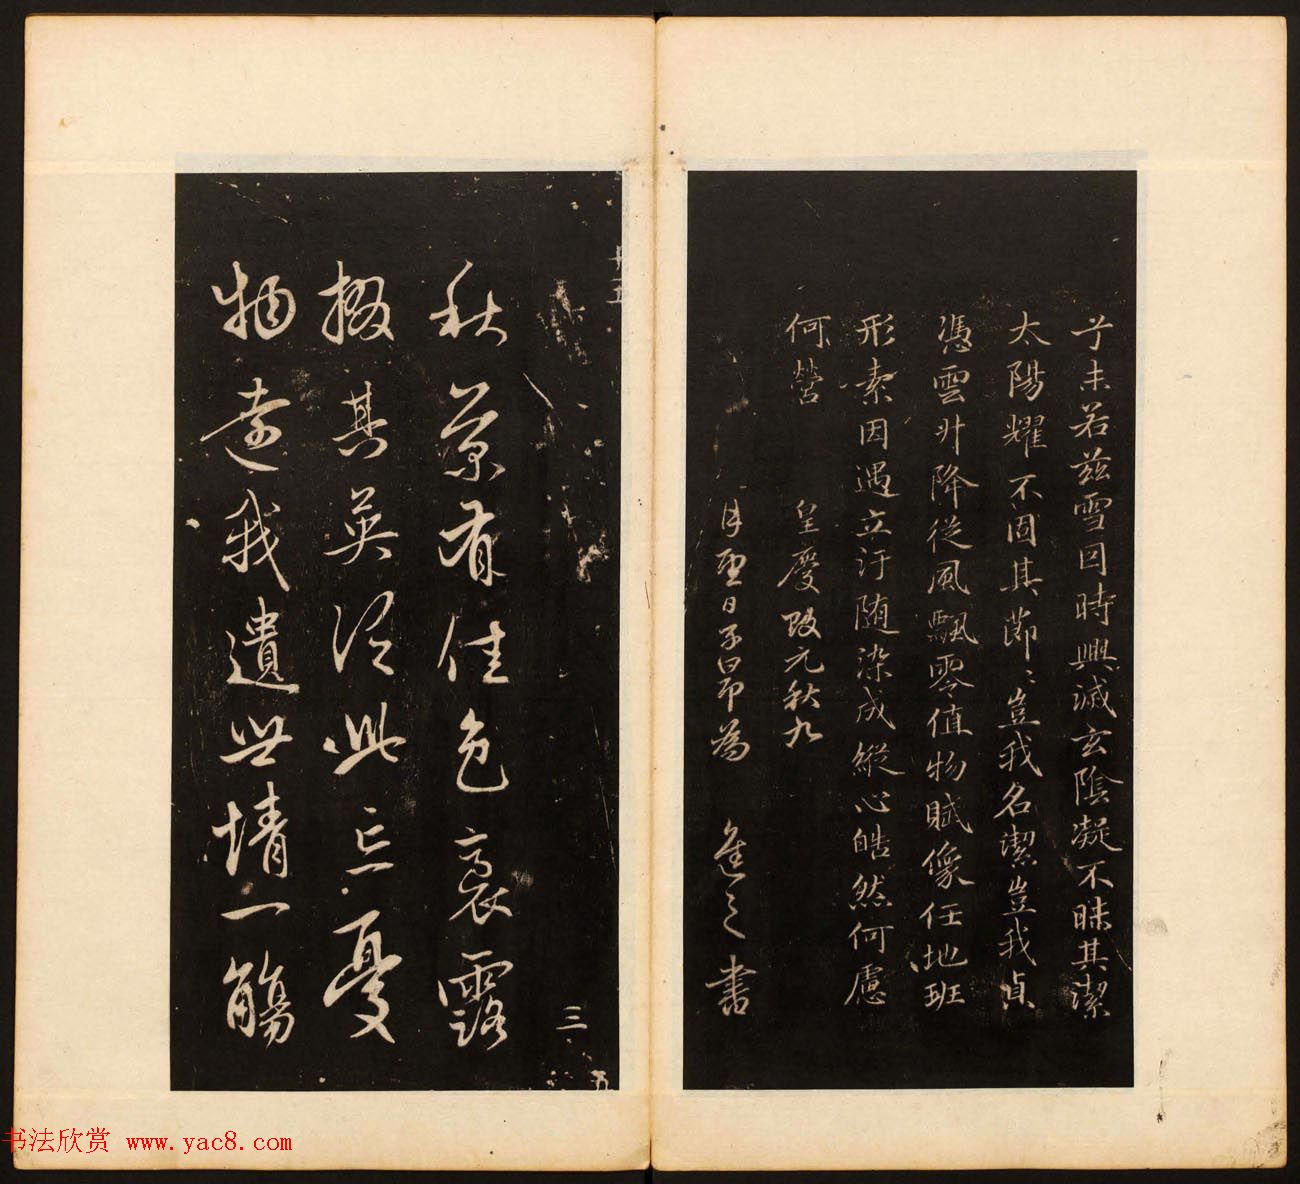 子未若茲雪因時興滅玄陰凝不昧其潔
太陽耀不固其節〻豈我名潔豈我貞
憑雲升降從風飄零值物賦像任地班
形素因遇立汙随染成縱心皓然何慮
何營 皇慶改元秋九
月 日子昂為 進之書
三
五
秋菊有佳色裛露
掇其英汎此忘憂
物遠我遺世情一觴
书法欣赏 www.yac8.com